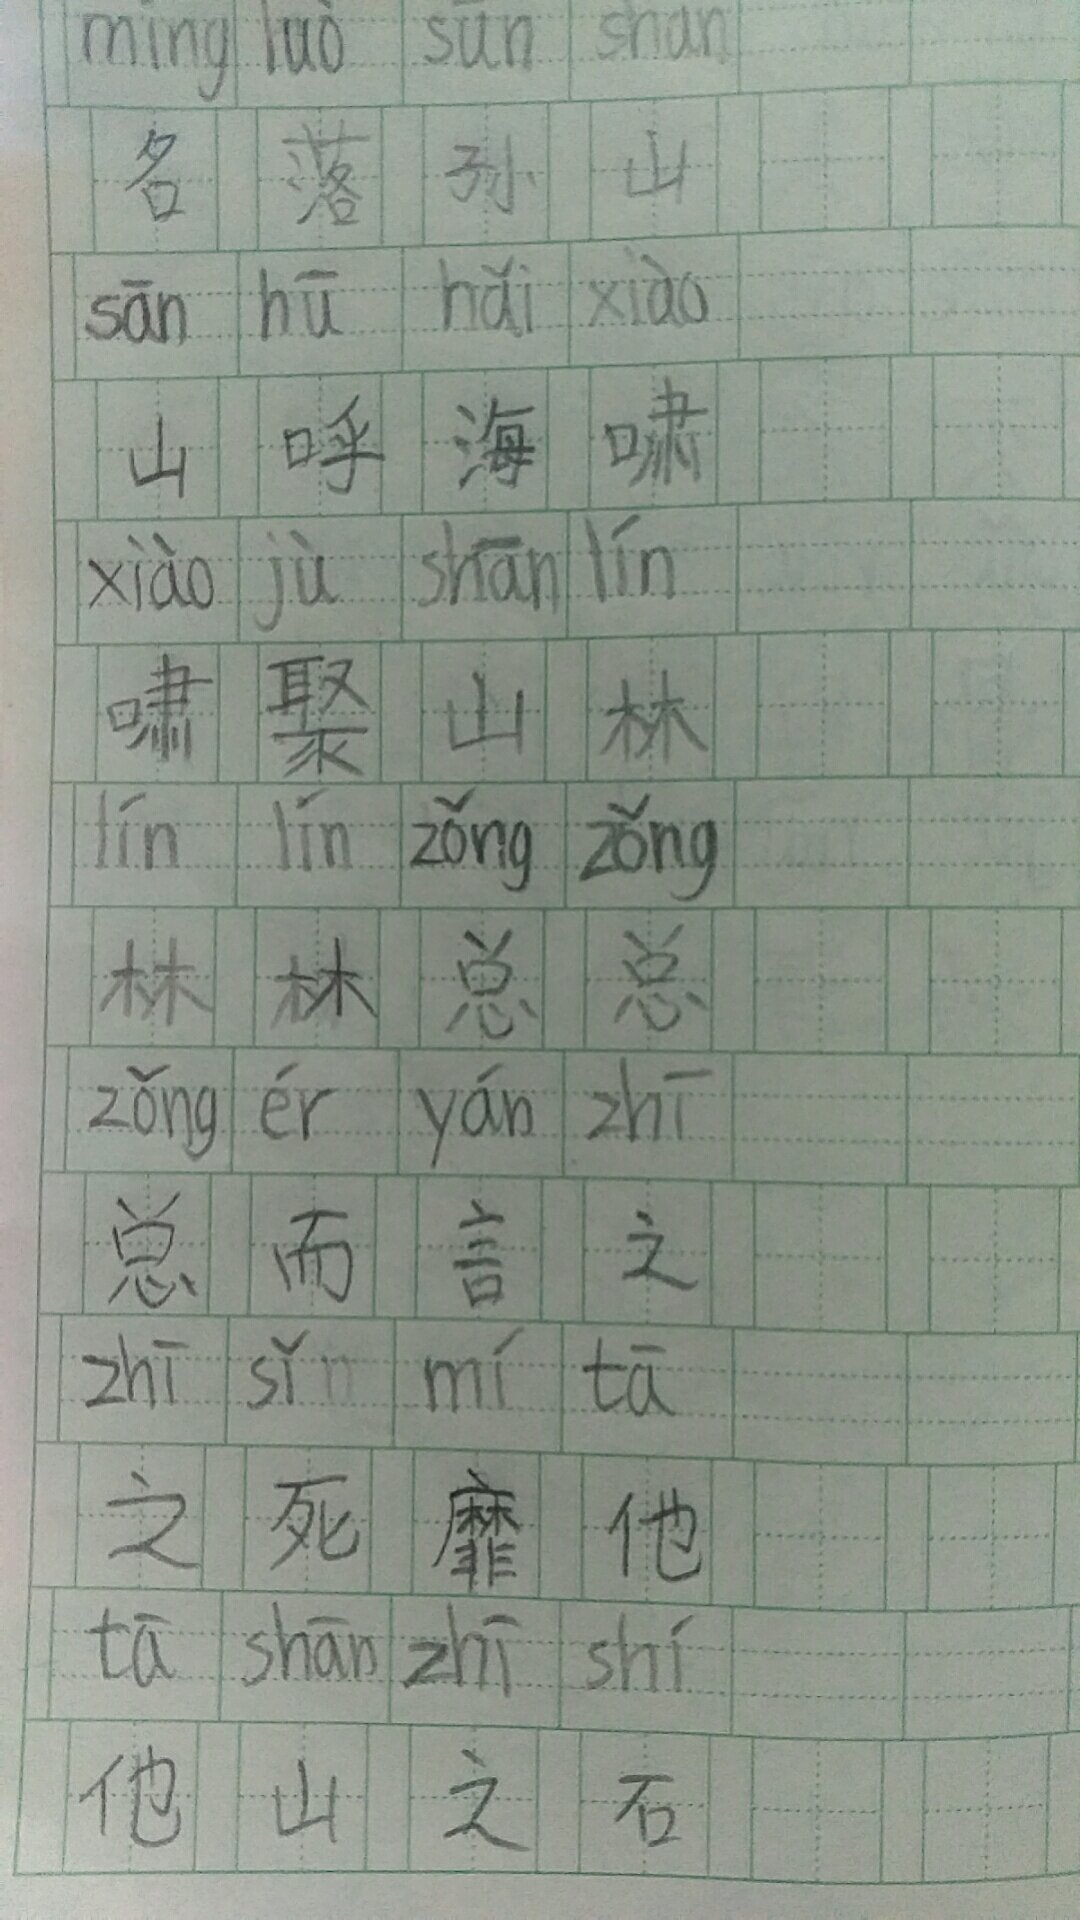 míng luò sūn shān
名落孙山
sān hū hǎi xiào
山呼海啸
xiào jù shān lín
啸聚山林
lín lín zǒng zǒng
林林总总
zǒng ér yán zhī
总而言之
zhī sǐ mí tā
之死靡他
tā shān zhī shí
他山之石